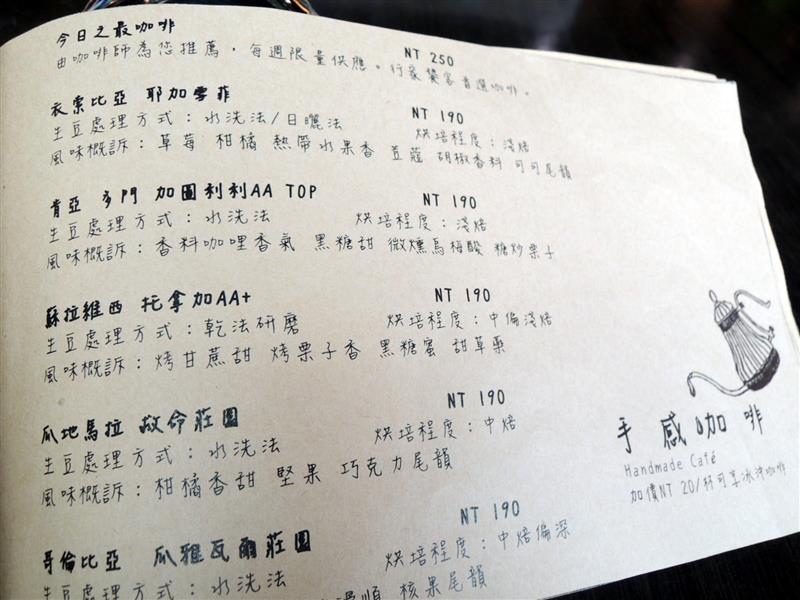 今日之最咖啡 NT 250
由咖啡師為您推薦，每週限量供應。行家饕客首選咖啡。
衣索比亞 耶加雪菲 NT 190
生豆處理方式：水洗法/日曬法 烘培程度：淺焙
風味概訴：草莓 柑橘 熱帶水果香 荳蔻 胡椒香料 可可尾韻
肯亞 多門 加圖利利AA TOP NT 190
生豆處理方式：水洗法 烘培程度：淺焙
風味概訴：香料咖哩香氣 黑糖甜 微燻烏梅酸 糖炒栗子
蘇拉維西 托拿加AA+ NT 190
生豆處理方式：乾法研磨 烘培程度：中偏淺焙
風味概訴：烤甘蔗甜 烤栗子香 黑糖蜜 甜草藥
瓜地馬拉 救命莊園 NT 190
生豆處理方式：水洗法 烘培程度：中焙
風味概訴：柑橘香甜 堅果 巧克力尾韻
哥倫比亞 瓜雅瓦爾莊園 NT 190
生豆處理方式：水洗法 烘培程度：中焙偏深
滑順 核果尾韻
手感咖啡
Handmade Café
加價NT 20/杯可享冰沖咖啡